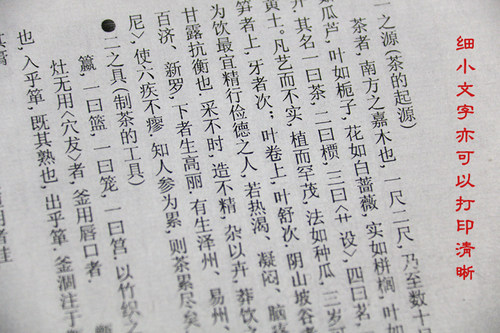 细小文字亦可以打印清晰
一之源(茶的起源)
茶者,南方之嘉木也,一尺二尺,乃至数十
如瓜芦,叶如栀子,花如白蔷薇,实如栟榈,叶如
其名一曰茶,二曰槚,三曰<艹设>四曰茗,
黄土。凡艺而不实,植而罕茂,法如种瓜,三岁
笋者上,牙者次;叶卷上,叶舒次。阴山坡谷
为饮最宜精行俭德之人,若热渴、凝闷、脑
甘露抗衡也。采不时,造不精,杂以卉,莽饮之
百济、新罗,下者生高丽。有生泽州、易州、
尼>,使六疾不瘳。知人参为累,则茶累尽矣。
●二之具(制茶的工具)
籝,一曰篮,一曰笼,一曰筥。以竹织之
灶无用<穴友>者,釜用唇口者。
也,入乎箄,既其熟也,出乎箄,釜涸注于